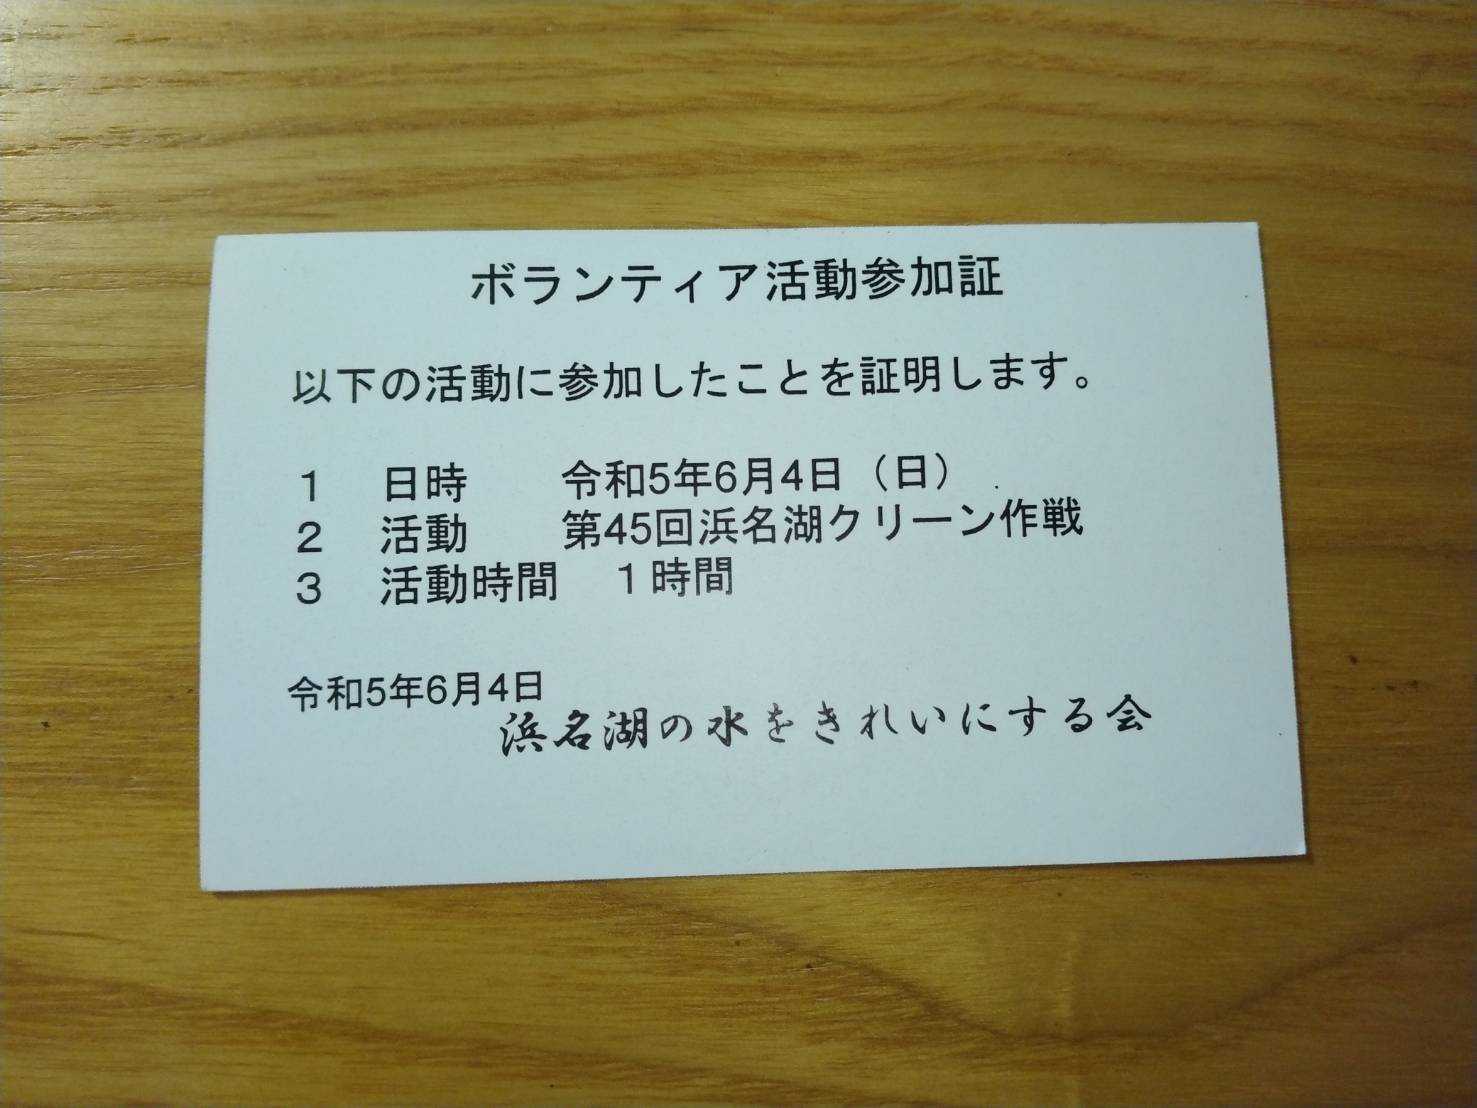 ボランティア活動参加証
以下の活動に参加したことを証明します。
１　日時　　令和5年6月4日（日）
２　活動　　第45回浜名湖クリーン作戦
３　活動時間　１時間
令和5年6月4日
浜名湖の水をきれいにする会